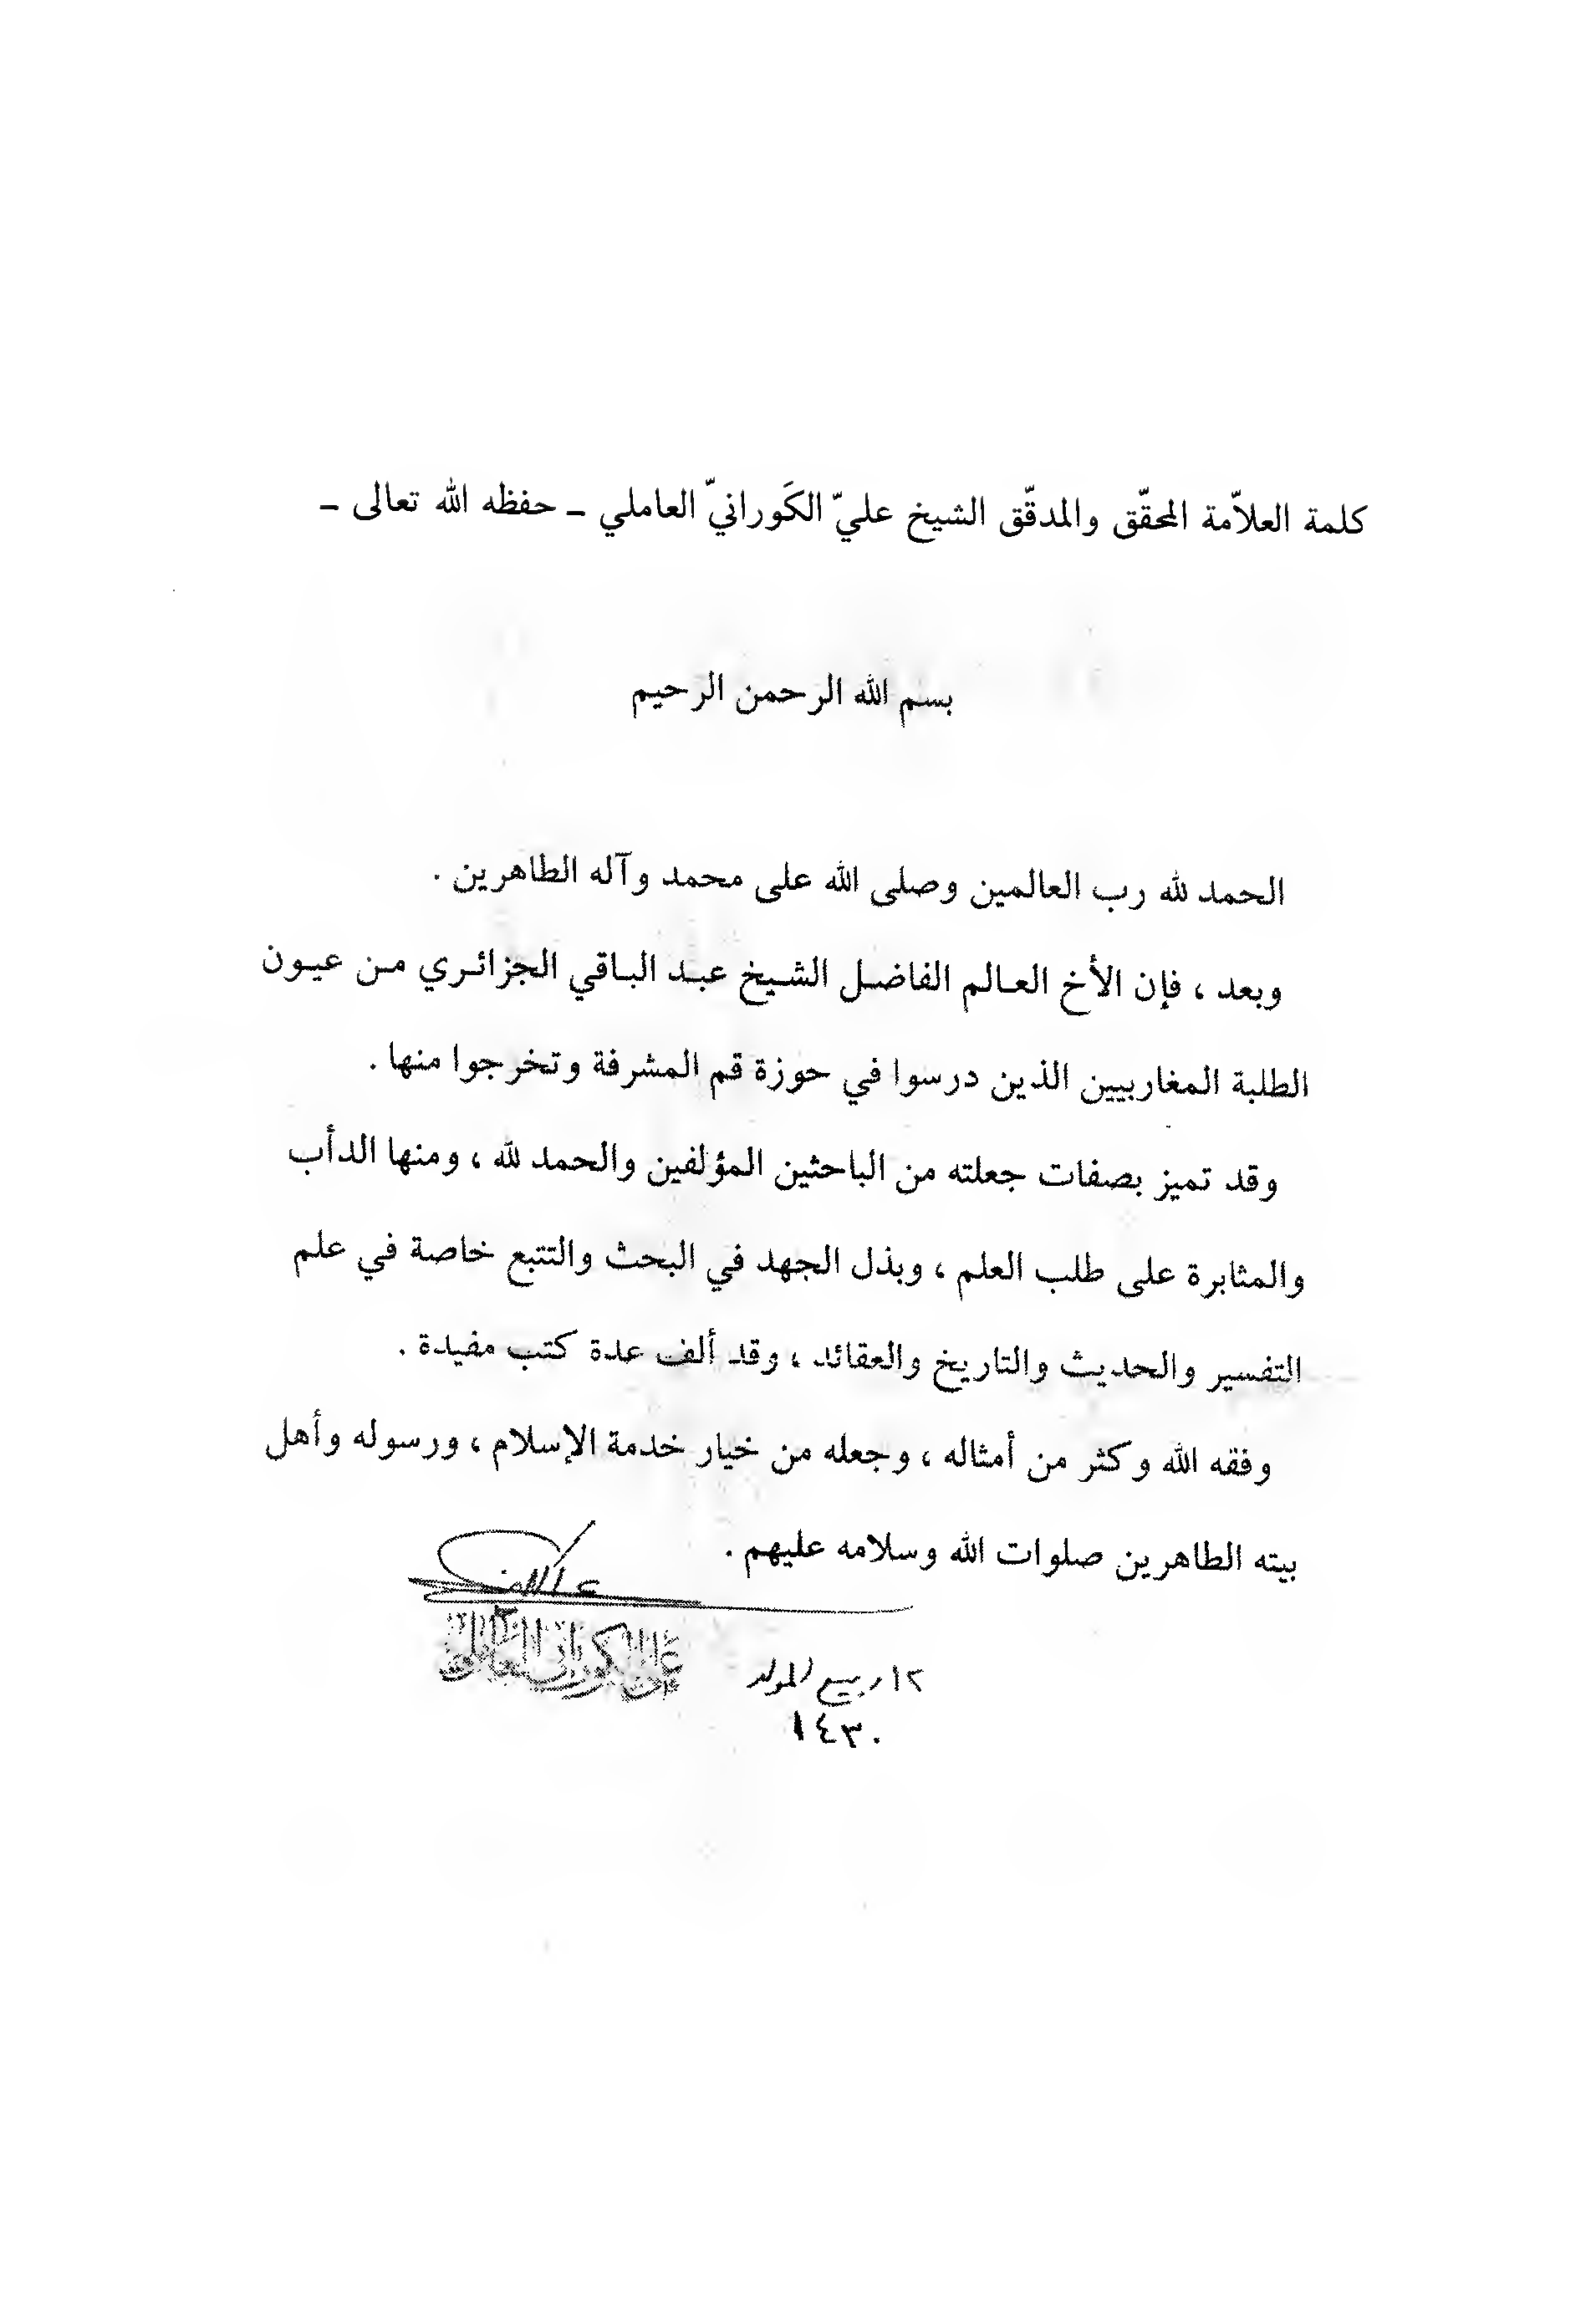 كلمة العلاّمة المحقّق والمدقّق الشيخ عليّ الكَورانيّ العاملي ـ حفظه الله تعالى ـ
بسم الله الرحمن الرحيم
الحمد لله رب العالمين وصلى الله على محمد وآله الطاهرين .
وبعد ، فإن الأخ العـالم الفاضـل الشـيخ عبـد البـاقي الجزائـري مـن عيـون
الطلبة المغاربيين الذين درسوا في حوزة قم المشرفة وتخرجوا منها .
وقد تميز بصفات جعلته من الباحثين المؤلفين والحمد لله ، ومنها الدأب
والمثابرة على طلب العلم ، وبذل الجهد في البحث والتتبع خاصة في علم
التفسير والحديث والتاريخ والعقائد ، وقد ألف عدة كتب مفيدة .
وفقه الله وكثر من أمثاله ، وجعله من خيار خدمة الإسلام ، ورسوله وأهل
بيته الطاهرين صلوات الله وسلامه عليهم .
علي الكوراني العاملي
ربيع المولد
١٤٣٠